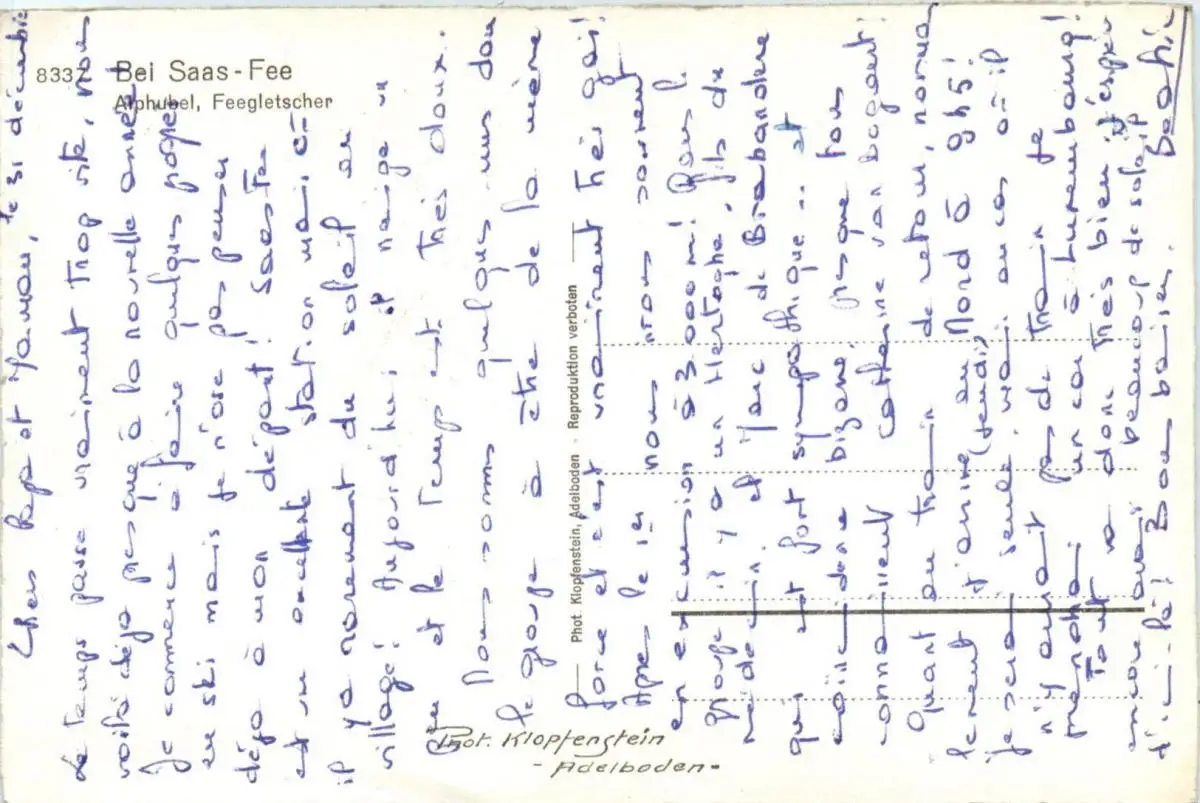 8337 Bei Saas-Fee
Alphubel, Feegletscher
Phot. Klopfenstein, Adelboden - Reproduktion verboten
Phot. Klopfenstein
- Adelboden -
le 31 décembre
Chers Papa et Maman,
Le temps passe vraiment trop vite, nous
voilà déjà presque à la nouvelle année!
Je commence à faire quelques progrès
en ski mais je n'ose pas penser
déjà à mon départ! Saas-Fee
est une excellente station mais
il y a rarement du soleil au
village! Aujourd'hui, il neige un
peu et le temps est très doux.
Nous sommes quelques uns dans
le groupe à être de la même
force et c'est vraiment très gai!
Après le 1er nous irons sûrement
en excursion à 3.000m! Dans le
groupe il y a un Hertoghe, fils du
médecin et Marc de Brabandere
qui est fort sympathique.. et
bizarre, presque tous
connaissent Catherine van
Quant au train de retour,
j'arrive au Nord à 9h45!
(jeudi)
je serai seule au cas où il
n'y aurait pas de train je
un car à Luxembourg!
Tout va donc très bien et j'espère
encore avoir beaucoup de soleil
d'ici là! Bons baisers.